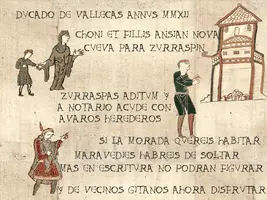 DVCADO DE VALLECAS ANNVS MMXII
CHONI ET FILLIS ANSIAN NOVA
CVEVA PARA ZVRRASPIN
ZVRRASPAS ADITVM Y
A NOTARIO ACVDE CON
AVAROS HEREDEROS
SI LA MORADA QVEREIS HABITAR
MARAVEDIES HABREIS DE SOLTAR
MAS EN ESCRITVRA NO PODRAN FIGVRAR
Y DE VECINOS GITANOS AHORA DISFRVTAR